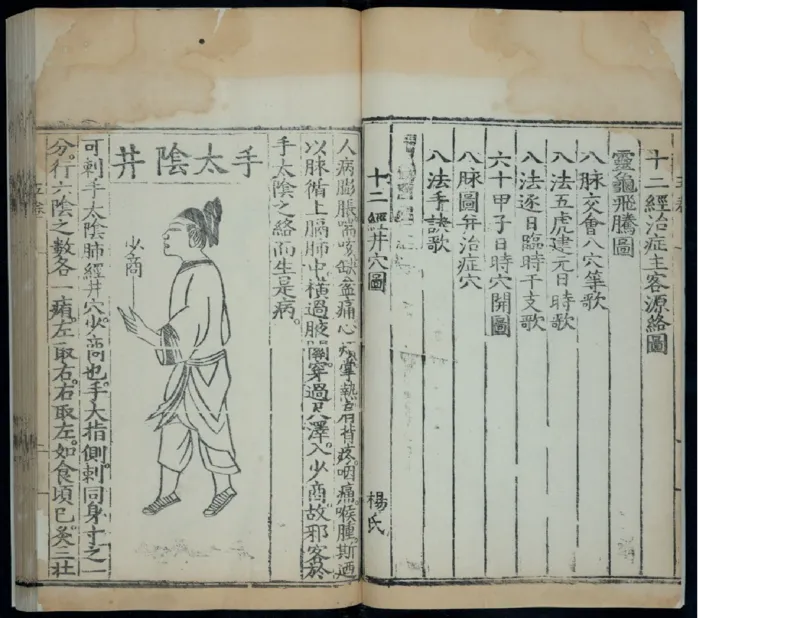 十二經治症主客源絡圖
靈龜飛騰圖
八脉交會八穴等歌
八法五虎建元日時歌
八法逐日臨時干支歌
六十甲子日時穴開圖
八脉圖并治症穴
八法手訣歌
十二經井穴圖 楊氏
人病膨脹喘咳缺盆痛心煩掌熱肩背疼。咽痛喉腫斯廼
以脉循上膈肺中橫過腋關穿過尺澤。入少商。故邪客於
手太陰之絡而生是病。
手太陰井
少商
可刺手太陰肺經井穴。少商也。手大指側。刺同身寸之一
分。行六陰之數各一痏。左取右。右取左。如食頃已。灸三壯